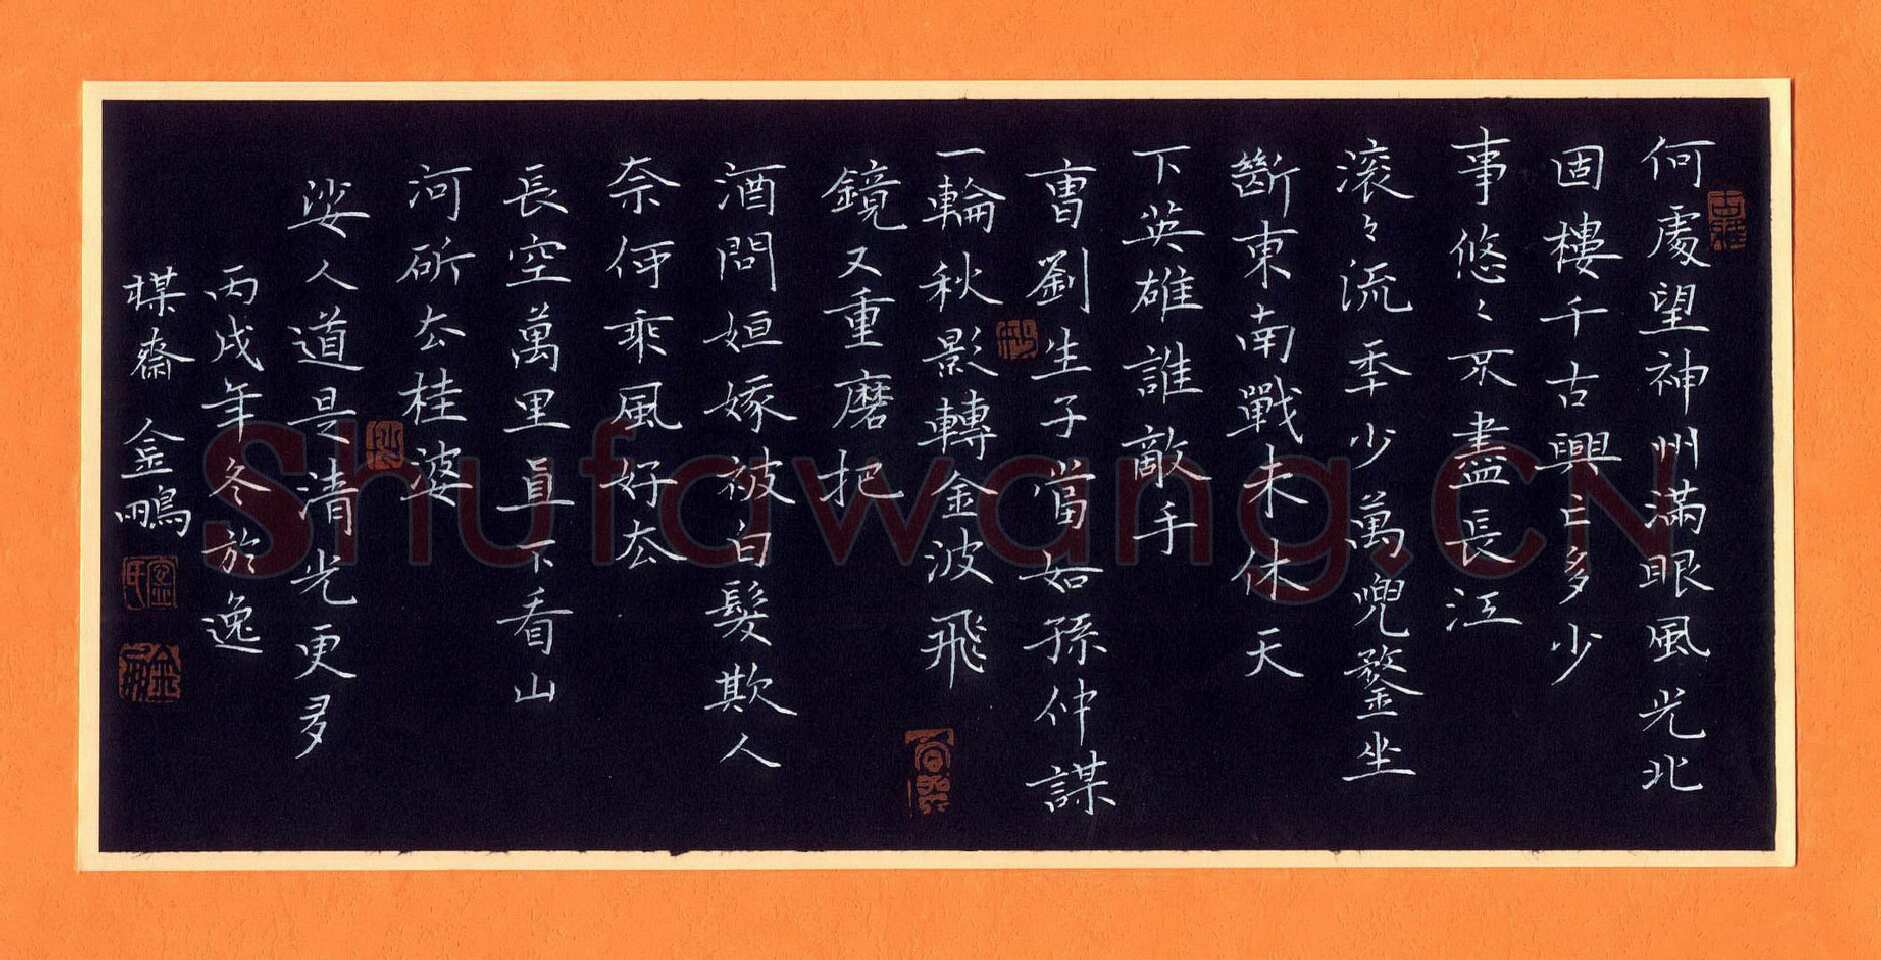 何處望神州滿眼風光北
固樓千古興亡多少
事悠々不盡長江
滾々流秊少萬兜鍪坐
斷東南戰未休天
下英雄誰敵手
曹劉生子當如孫仲謀
一輪秋影轉金波飛
鏡又重磨把
酒問姮嫁被白髮欺人
奈何乘風好去
長空萬里直下看山
河斫去桂婆
娑人道是清光更多
丙戌年冬於逸
楳齋 金鵬
Shufawang.CN